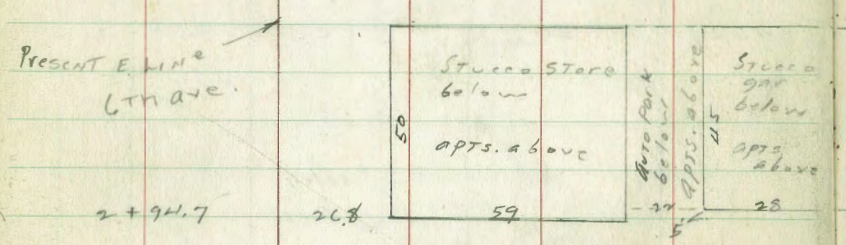 Present E. Line
6TH ave.
Stucco Store
below
apts. above
50
Auto Park
below
apts. above
45
Stucco
gar
below
apts
above
2 + 94.7
26.8
59
22
5
28